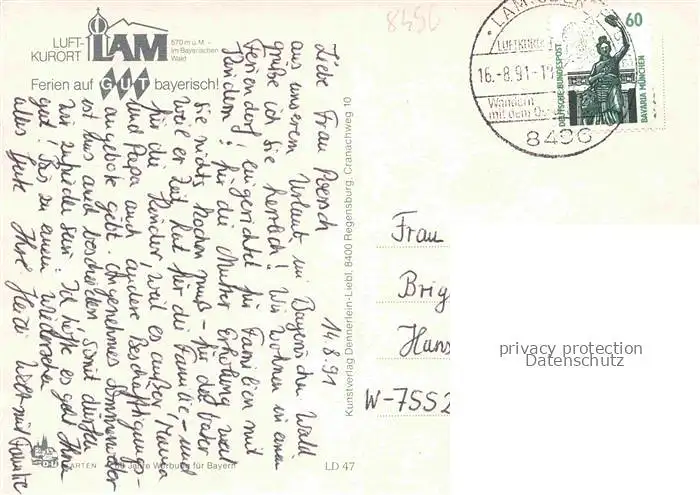 LUFT-
KURORT
LAM
570 m ü.M. –
im Bayerischen
Wald
Ferien auf GUT bayerisch!
14.8.91
Liebe Frau
aus unserem Urlaub im Bayerischen Wald
grüße ich Sie herzlich! Wir wohnen in einem
Feriendorf! eingerichtet für Familien mit
Kindern! für die Mutter Erholung weil
sie nichts kochen muß – für der Vater
weil er Zeit hat für die Familie – und
für die Kinder, weil es außer Mama
und Papa auch andere Beschäftigungs-
angebote gibt. Angenehmes Sommerwetter
ist uns auch beschieden. Somit dürfen
wir zufrieden sein. Ich hoffe es geht Ihnen
gut! Bis zu einem Wiedersehen
alles Gute Ihre Heidi mit Familie
Kunstverlag Dennerlein-Liebl, 8400 Regensburg, Cranachweg 10
Jahre Werbung für Bayern
LD 47
8496
LAM
LUFTKURORT
16.-8.91-1
Wandern
mit dem
8496
60
DEUTSCHE BUNDESPOST
BAVARIA MÜNCHEN
Frau
Brig
Hans
W-7552
privacy protection
Datenschutz